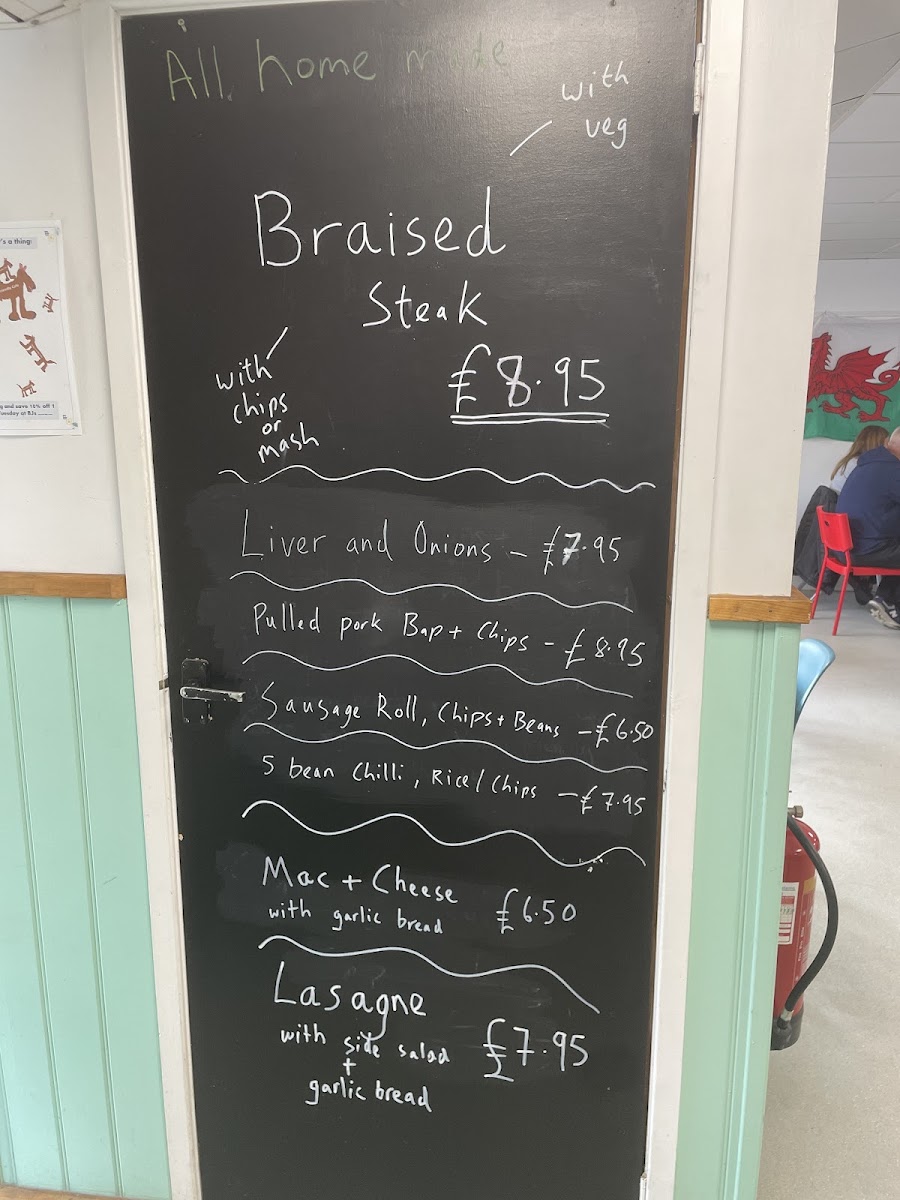 All home made
with
veg
Braised
Steak
£8.95
with
chips
or
mash
Liver and Onions - £7.95
Pulled pork Bap + Chips - £8.95
Sausage Roll, Chips + Beans - £6.50
5 bean Chilli, Rice / Chips - £7.95
Mac + Cheese
with garlic bread £6.50
Lasagne
with side salad £7.95
+
garlic bread
's a thing: